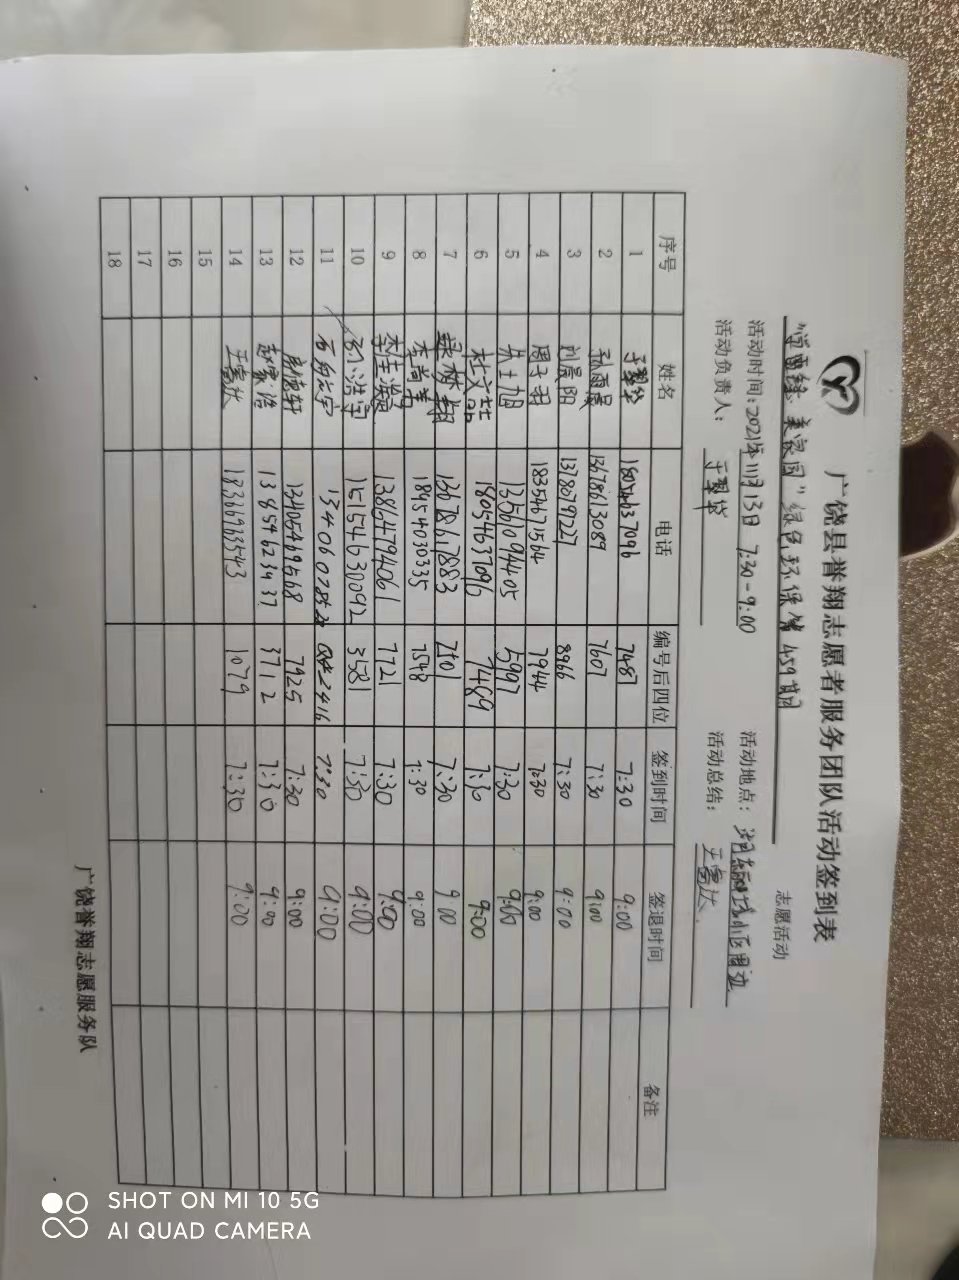 广饶县誉翔志愿者服务团队活动签到表
美家园"绿色环保第459期 志愿活动
活动时间：2021年11月13日 7:30-9:00 活动地点：
活动负责人：于翠华 活动总结：
序号 姓名 电话 编号后四位 签到时间 签退时间 备注
1 于翠华 18054637096 7487 7:30 9:00
2 孙雨晨 13678613089 7607 7:30 9:00
3 刘景阳 13780719227 8966 7:30 9:00
4 周子羽 18354671564 7944 7:30 9:00
5 13561094405 5997 7:30 9:00
6 杜文喆 18054637096 7469 7:30 9:00
7 7:30 9:00
8 李尚美 18454030335 7548 7:30 9:00
9 13864794061 7721 7:30 9:00
10 15154630092 3581 7:30 9:00
11 2416 7:30 9:00
12 13405469568 7925 7:30 9:00
13 赵家浩 13854623937 3712 7:30 9:00
14 18336963543 1079 7:30 9:00
15
16
17
18
广饶誉翔志愿服务队
SHOT ON MI 10 5G
AI QUAD CAMERA